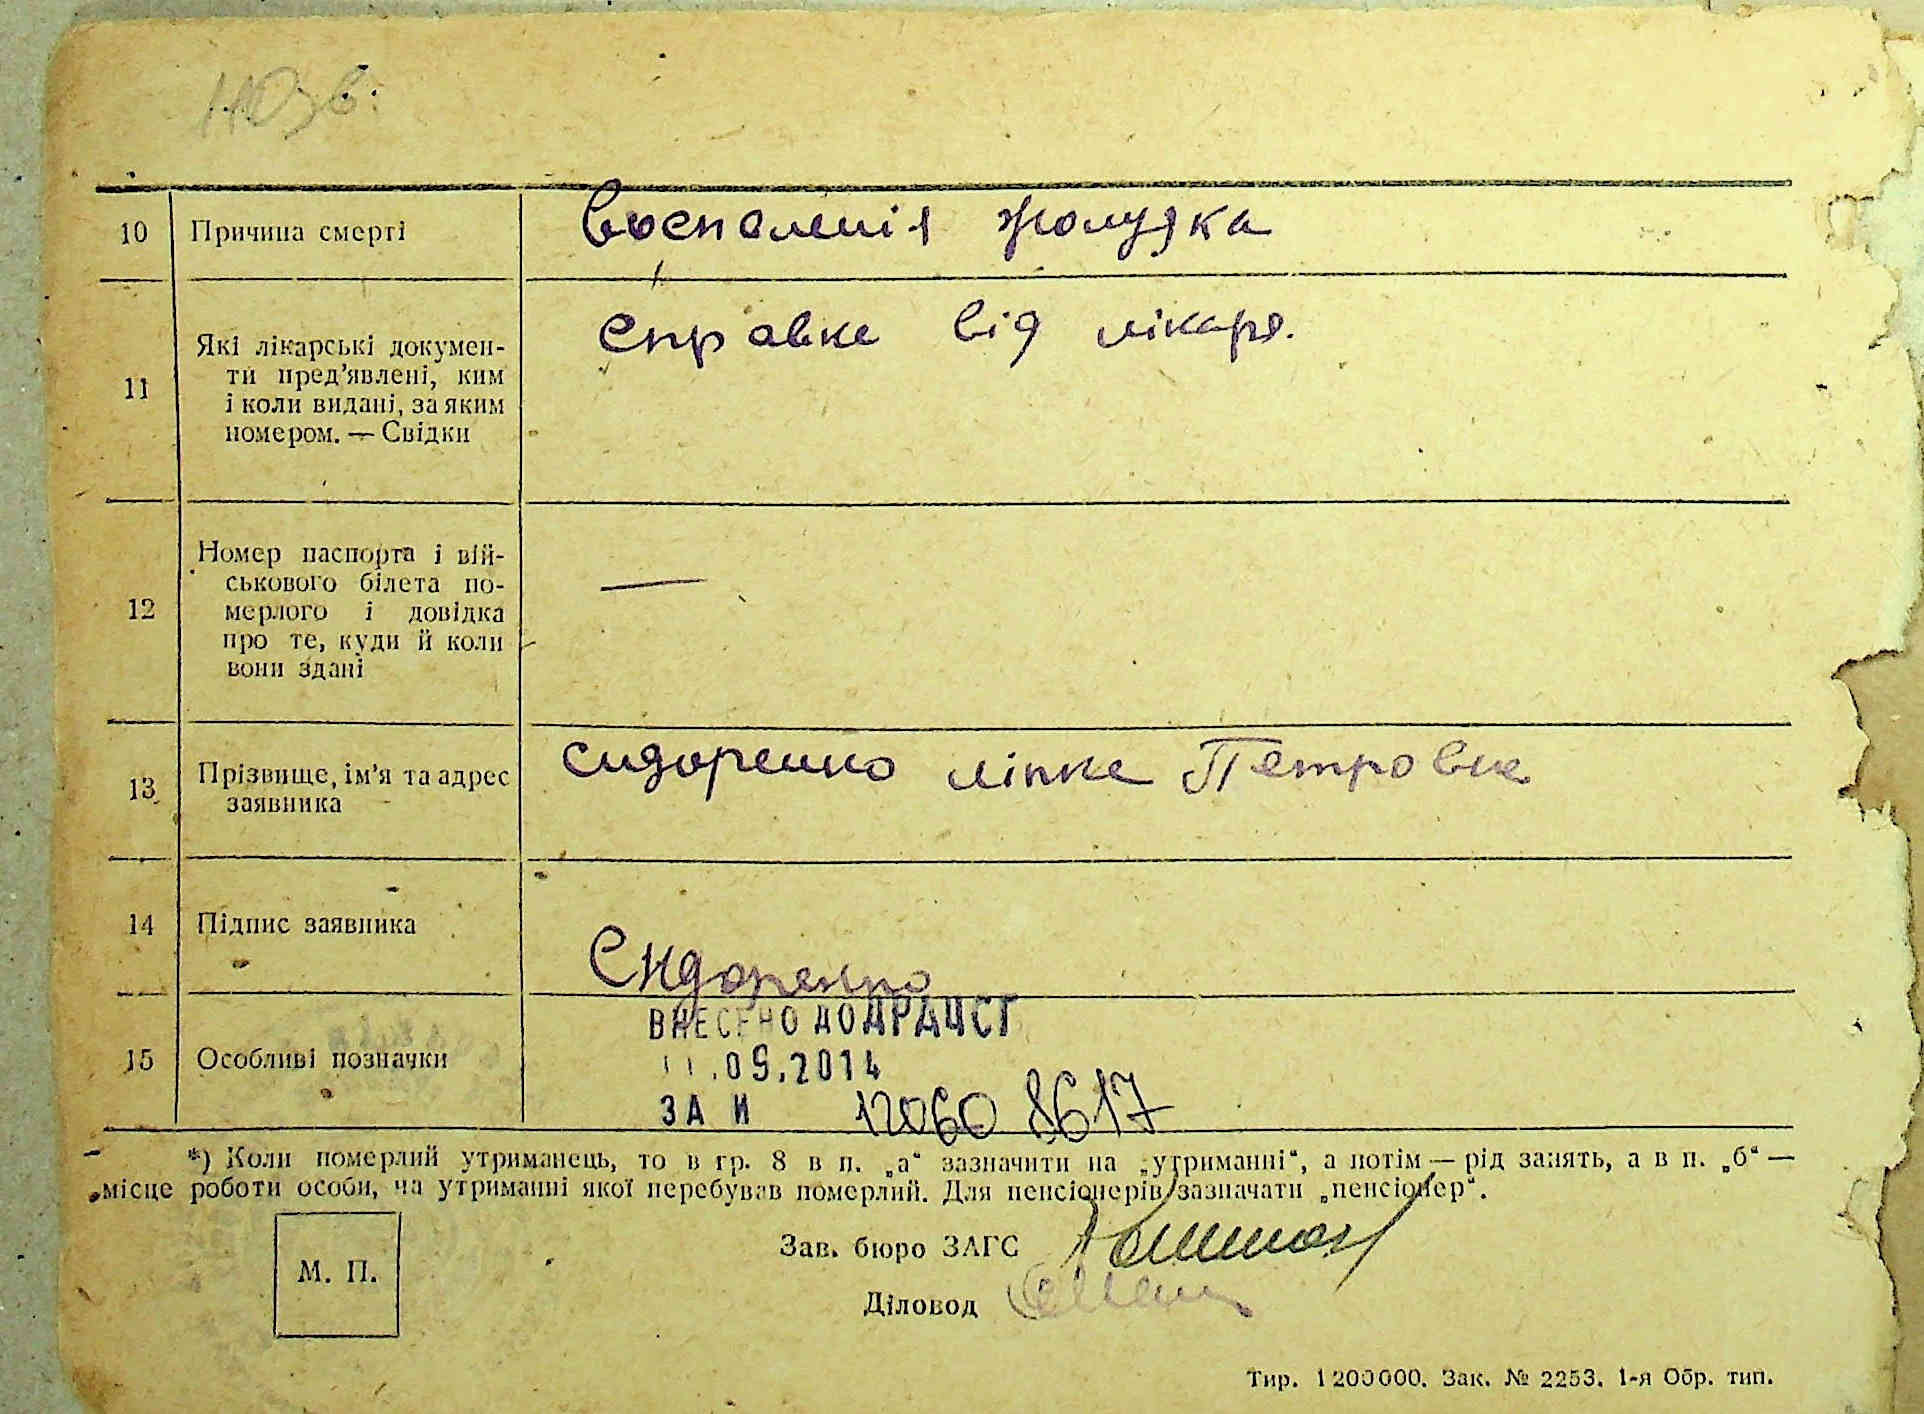 10 Причина смерті воспаленія жолудка
11 Які лікарські докумен-
ти пред'явлені, ким
і коли видані, за яким
номером. — Свідки
справка від лікаря.
12 Номер паспорта і вій-
ськового білета по-
мерлого і довідка
про те, куди й коли
вони здані
—
13 Прізвище, ім'я та адрес
заявника
Сидоренко Петровна
14 Підпис заявника
Сидоренко
15 Особливі позначки
ВНЕСЕНО ДО ДРАЦСГ
11.09.2014
ЗА И 12060 8617
*) Коли померлий утриманець, то в гр. 8 в п. „а“ зазначити на „утриманні“, а потім — рід занять, а в п. „б“ —
місце роботи особи, на утриманні якої перебував померлий. Для пенсіонерів зазначати „пенсіонер“.
Зав. бюро ЗАГС
М. П.
Діловод
Тир. 1200000. Зак. № 2253. 1-я Обр. тип.